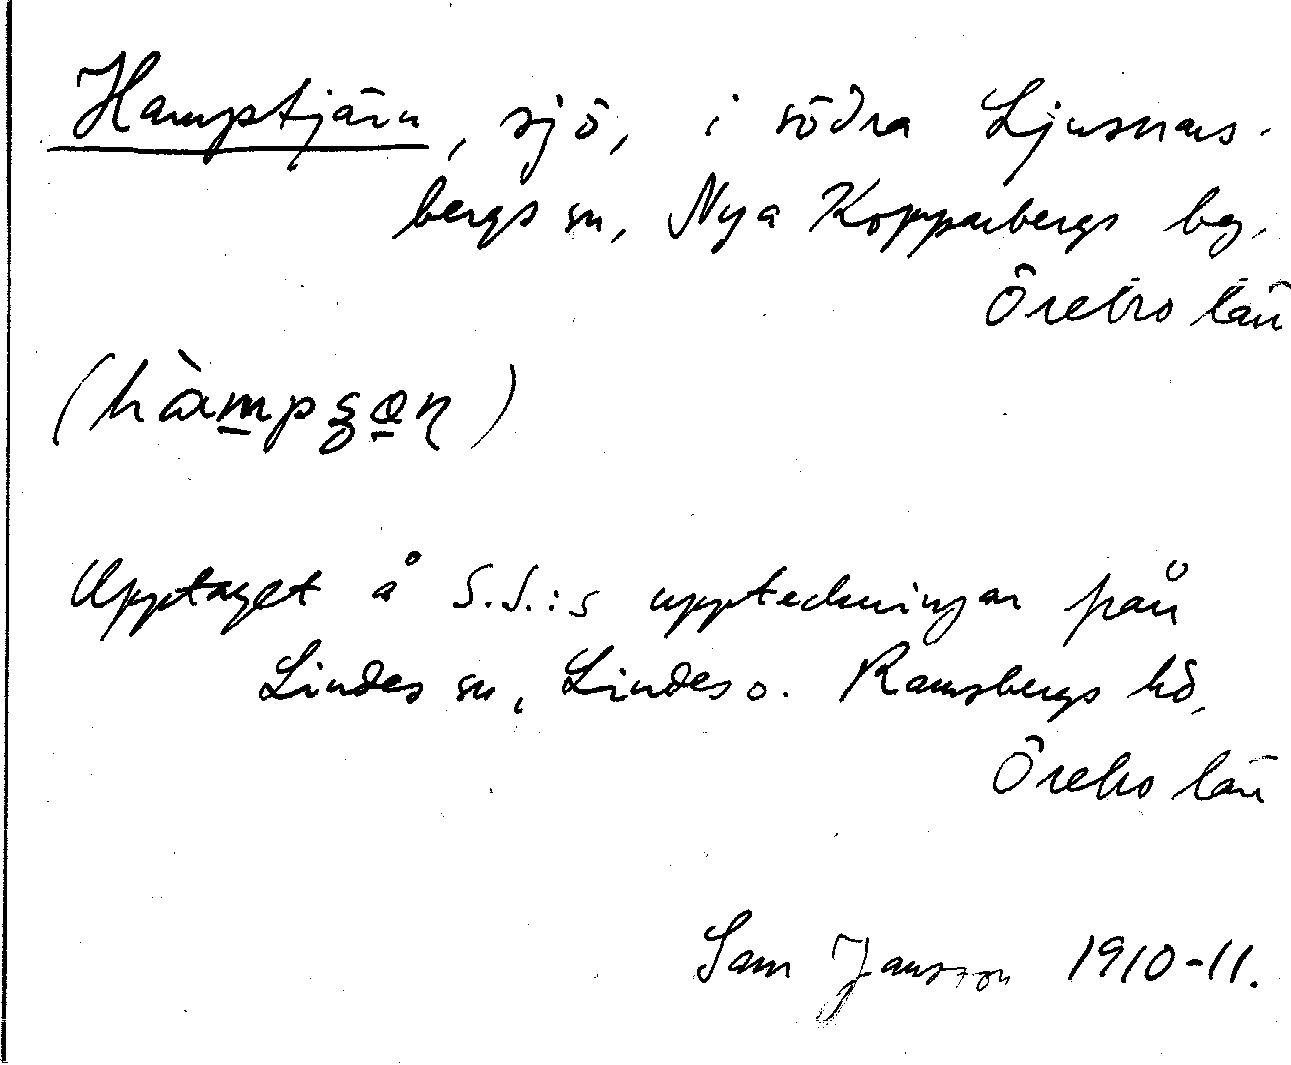 Hamptjärn, sjö, i södra Ljusnars-
bergs sn, Nya Kopparbergs bg,
Örebro län
(hàmpʂɷɳ)
Upptaget å S.J.:s uppteckningar från
Lindes sn, Lindes o. Ramsbergs hd,
Örebro län
Sam Jansson 1910-11.